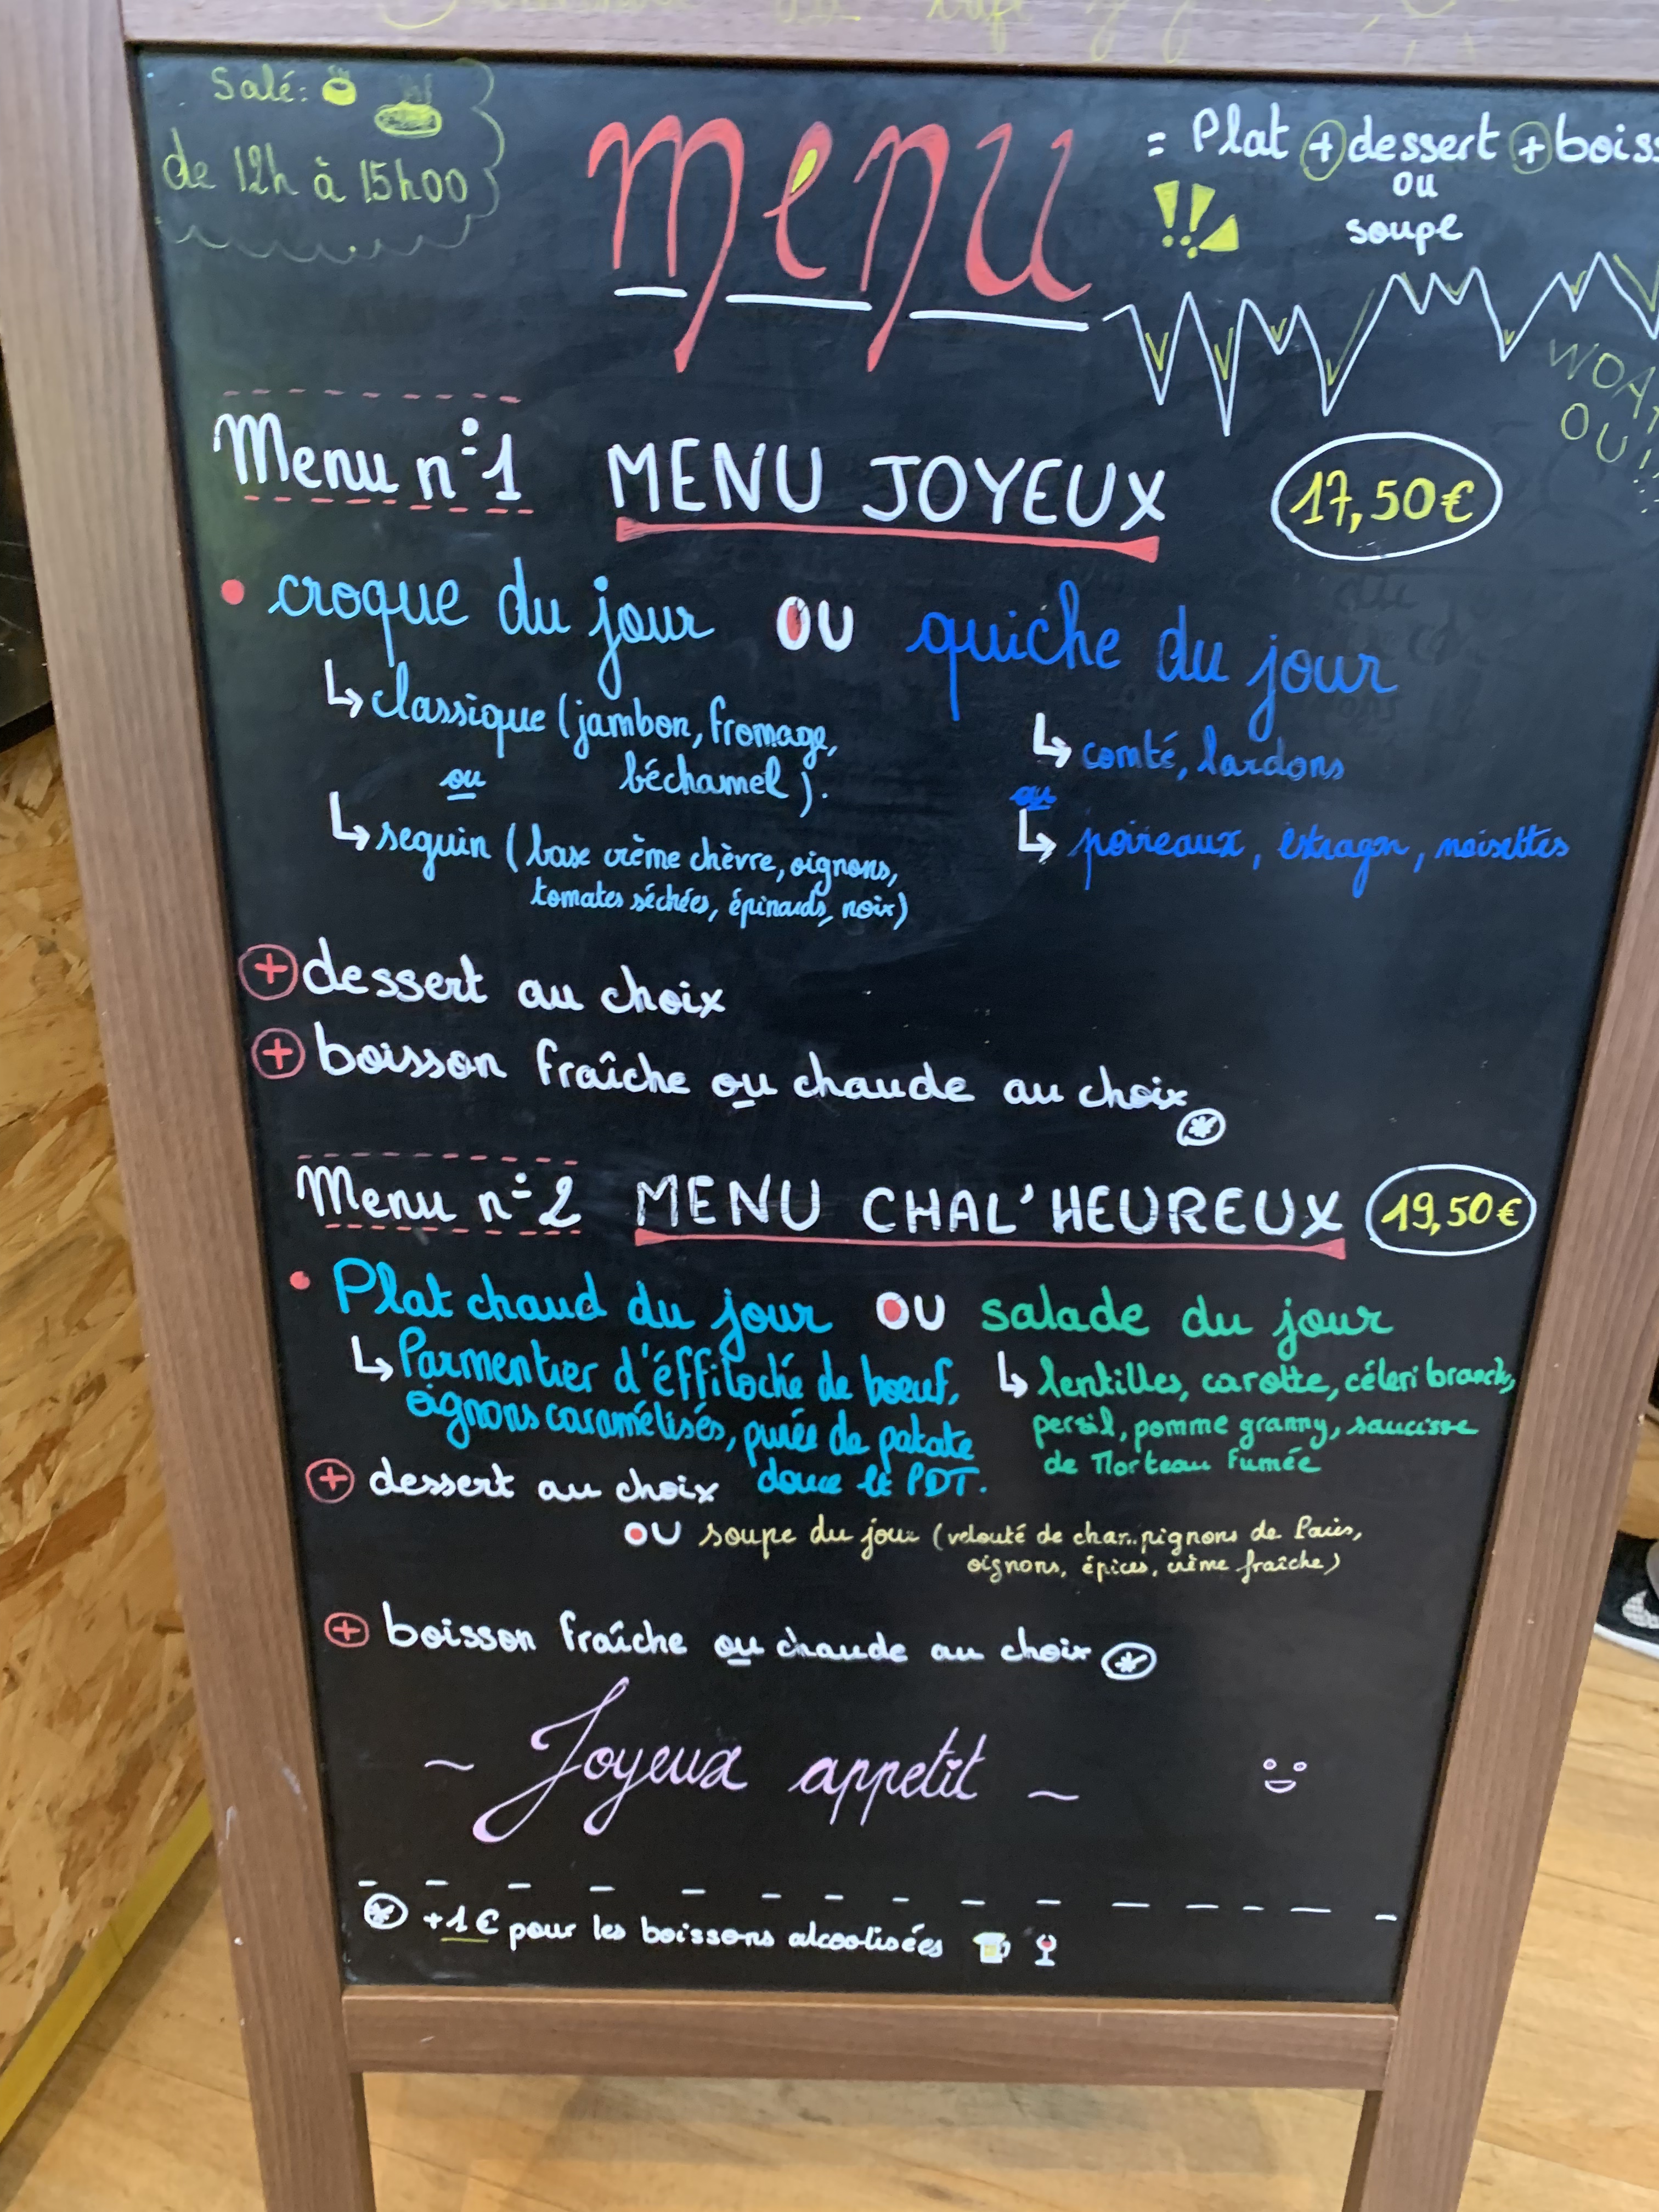 Salé:
de 12h à 15h00
menu
= Plat + dessert + boiss
ou
soupe
OU!!
Menu n°1 MENU JOYEUX 17,50€
• croque du jour OU quiche du jour
↳ classique (jambon, fromage,
béchamel).
ou
↳ seguin (base crème chèvre, oignons,
tomates séchées, épinards, noix)
↳ comté, lardons
ou
↳ poireaux, estragon, noisettes
+ dessert au choix
+ boisson fraîche ou chaude au choix *
Menu n°2 MENU CHAL'HEUREUX 19,50€
• Plat chaud du jour OU salade du jour
↳ Parmentier d'éffiloché de boeuf,
oignons caramélisés, purée de patate
douce et PDT.
↳ lentilles, carotte, céleri branch,
persil, pomme granny, saucisse
de Morteau fumée
+ dessert au choix
OU soupe du jour (velouté de champignons de Paris,
oignons, épices, crème fraîche)
+ boisson fraîche ou chaude au choix *
~ Joyeux appetit ~
* +1€ pour les boissons alcoolisées